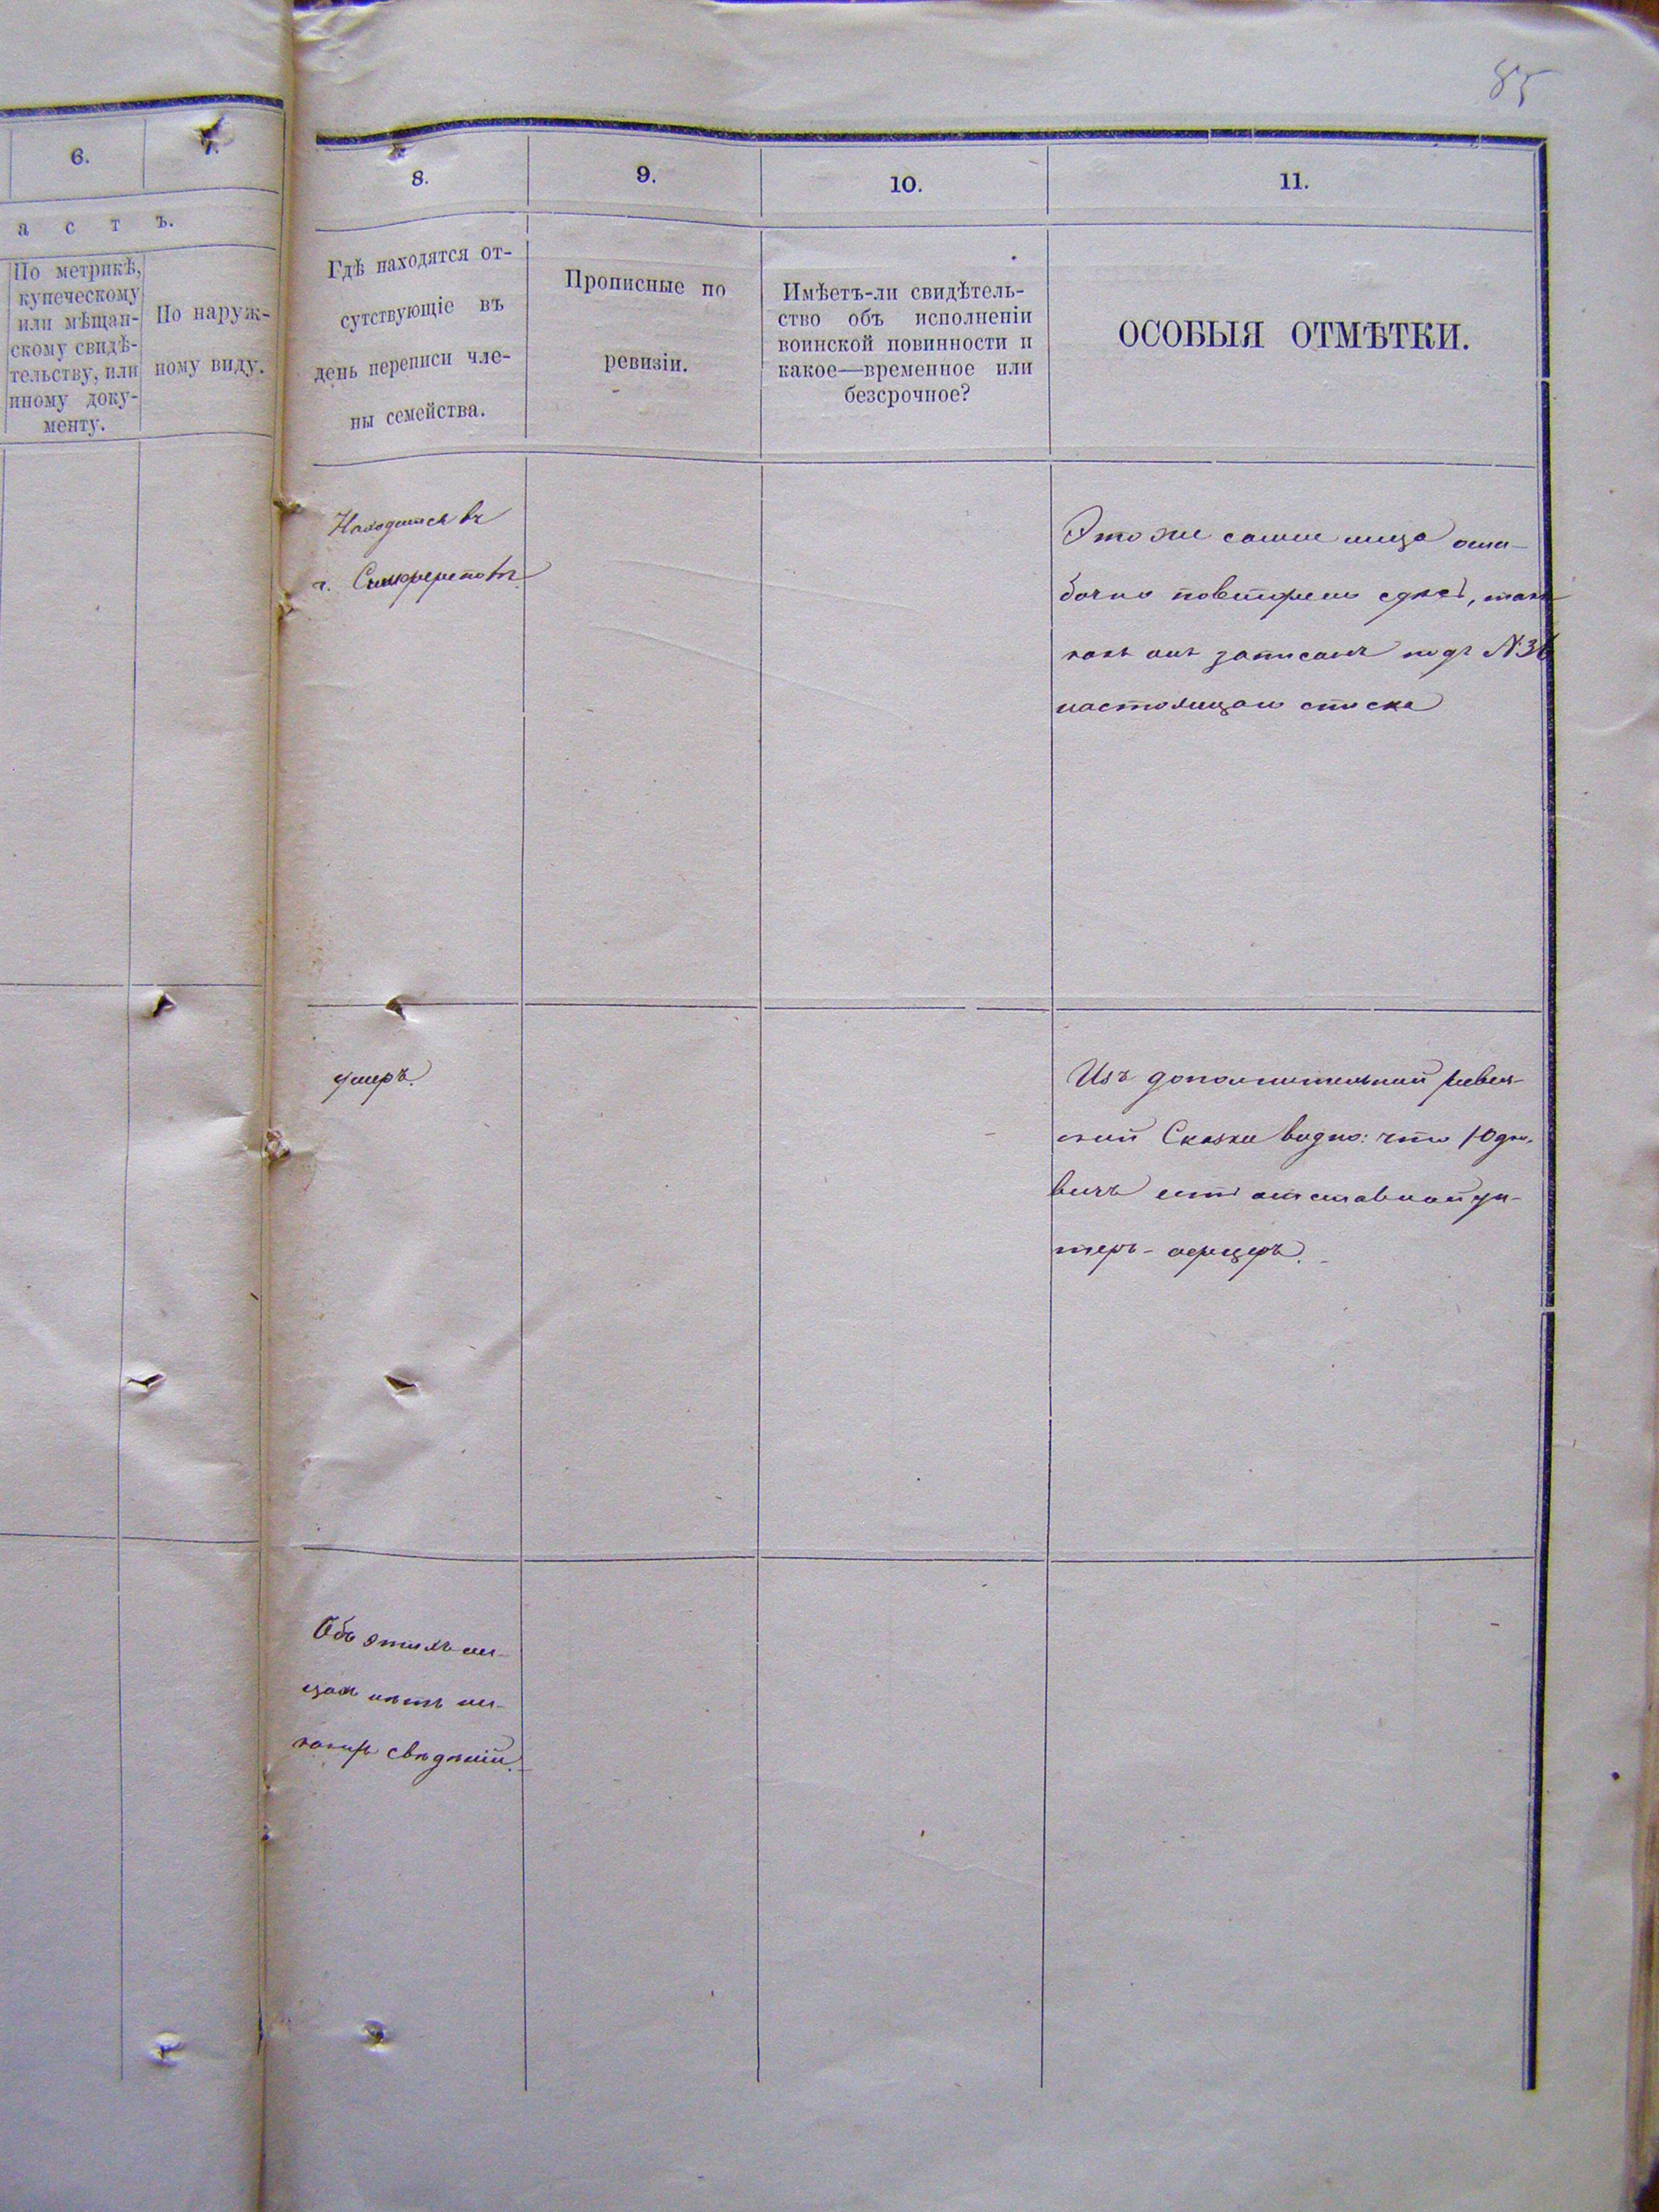 85
6.
7.
а с т ъ.
По метрикѣ,
купеческому
или мѣщан-
скому свидѣ-
тельству, или
иному доку-
менту.
По наруж-
ному виду.
8.
9.
10.
11.
Гдѣ находятся от-
сутствующіе въ
день переписи чле-
ны семейства.
Прописные по
ревизіи.
Имѣетъ-ли свидѣтель-
ство объ исполненіи
воинской повинности и
какое—временное или
безсрочное?
ОСОБЫЯ ОТМѢТКИ.
Находится въ
г. Симферополѣ
Это же самое лицо оши-
бочно повторено здѣсь, такъ
какъ онъ записанъ подъ №36
настоящаго списка
умеръ.
Изъ дополнительной ревиз-
ской Сказки видно: что Юдко-
вичъ есть отставной ун-
теръ-офицеръ.
Объ этихъ ли-
цахъ нѣтъ ни-
какихъ свѣдѣній.